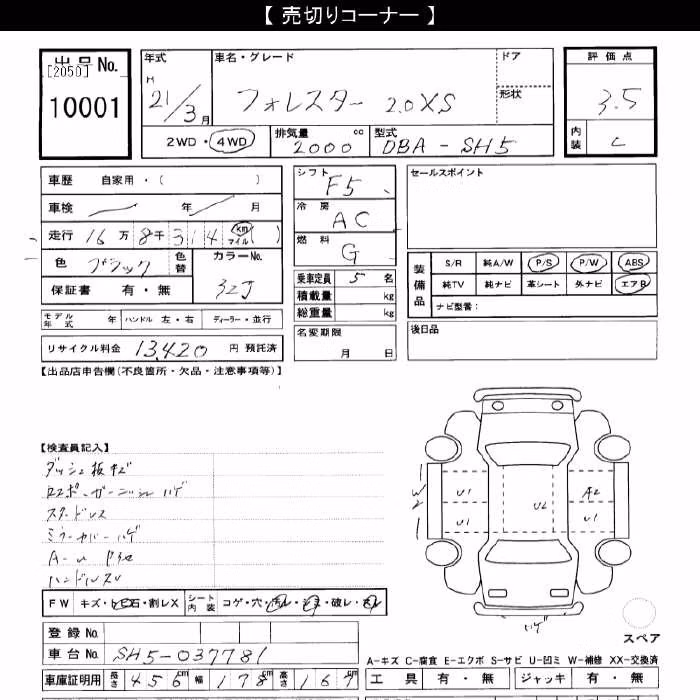 【 売切りコーナー 】
出品 No.
[2050]
10001
年式 H 21/3月
車名・グレード フォレスター 2.0XS
ドア
形状
2WD・4WD
排気量 2000 cc
型式 DBA-SH5
評価点 3.5
内装 C
車歴 自家用・( )
車検 年 月
走行 16万8千314 km マイル ( )
色 ブラック 色替
カラーNo. 32J
保証書 有・無
モデル年式 年 ハンドル 左・右 ディーラー・並行
リサイクル料金 13,420 円 預託済
シフト F5
冷房 AC
燃料 G
乗車定員 5 名
積載量 kg
総重量 kg
名変期限
月 日
セールスポイント
装備品
S/R 純A/W P/S P/W ABS
純TV 純ナビ 革シート 外ナビ エアB
ナビ型番：
後日品
【出品店申告欄(不良箇所・欠品・注意事項等)】
【検査員記入】
ダッシュ板キズ
スタードレス
ミラーカバーハゲ
FW キズ・ヒビ石・割レX シート内装 コゲ・穴・汚レ・シミ・破レ・
U1 U2 A2
U1 U1
W2
ハゲ
スペア
登録 No.
車台 No. SH5-037781
車庫証明用 長さ 456 cm 幅 178 cm 高さ 167
A-キズ C-腐食 E-エクボ S-サビ U-凹ミ W-補修 XX-交換済
工具 有・無 ジャッキ 有・無